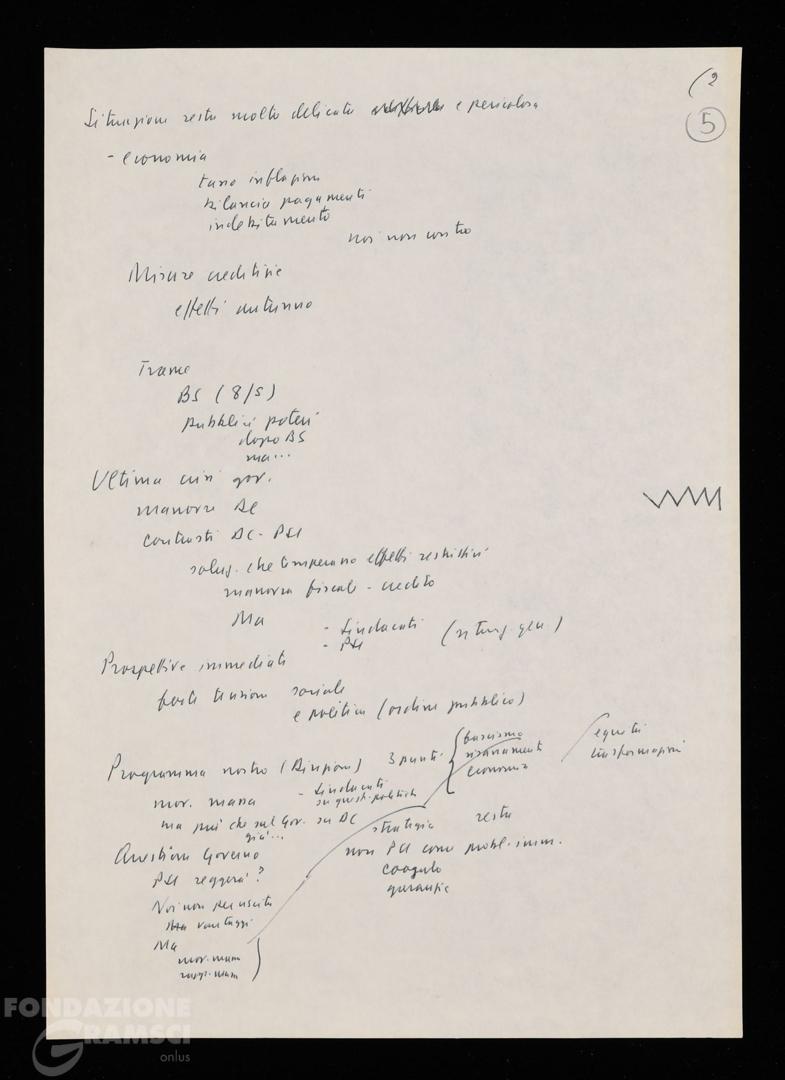 (2
5
Situazione resta molto delicata e pericolosa
- economia
tasso inflazione
bilancia pagamenti
indebitamento
noi non contro
Misure creditizie
effetti autunno
Trame
BS (8/5)
pubblici poteri
dopo BS
ma...
Ultima crisi gov.
manovre DC
contrasti DC - PSI
soluz. che temperano effetti restrittivi
manovra fiscale - credito
Ma - Sindacati
- PSI
Prospettive immediate
forte tensione sociale
e politica (ordine pubblico)
Programma nostro (Direzione) 3 punti { fascismo
risanamento
economia
equità
trasformazioni
mov. massa - Sindacati
su quest. politiche
ma più che sul Gov. su DC
già...
strategia resta
Questione Governo
non PCI come probl. imm.
coagulo
garantie
PSI reggerà?
Noi non per uscita
vantaggi
Ma
mov. mass
FONDAZIONE
GRAMSCI
onlus